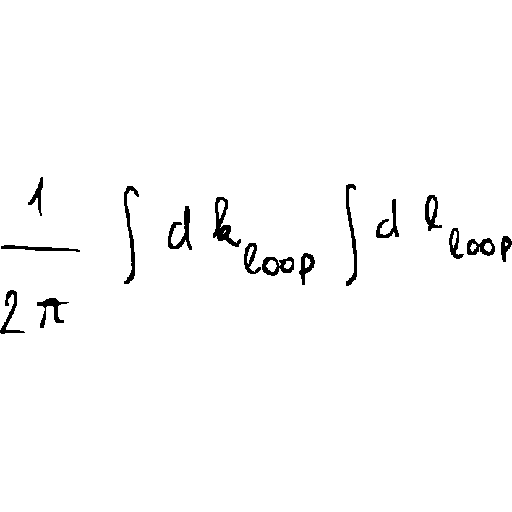 \frac{1}{2\pi} \int d k_{loop} \int d l_{loop}